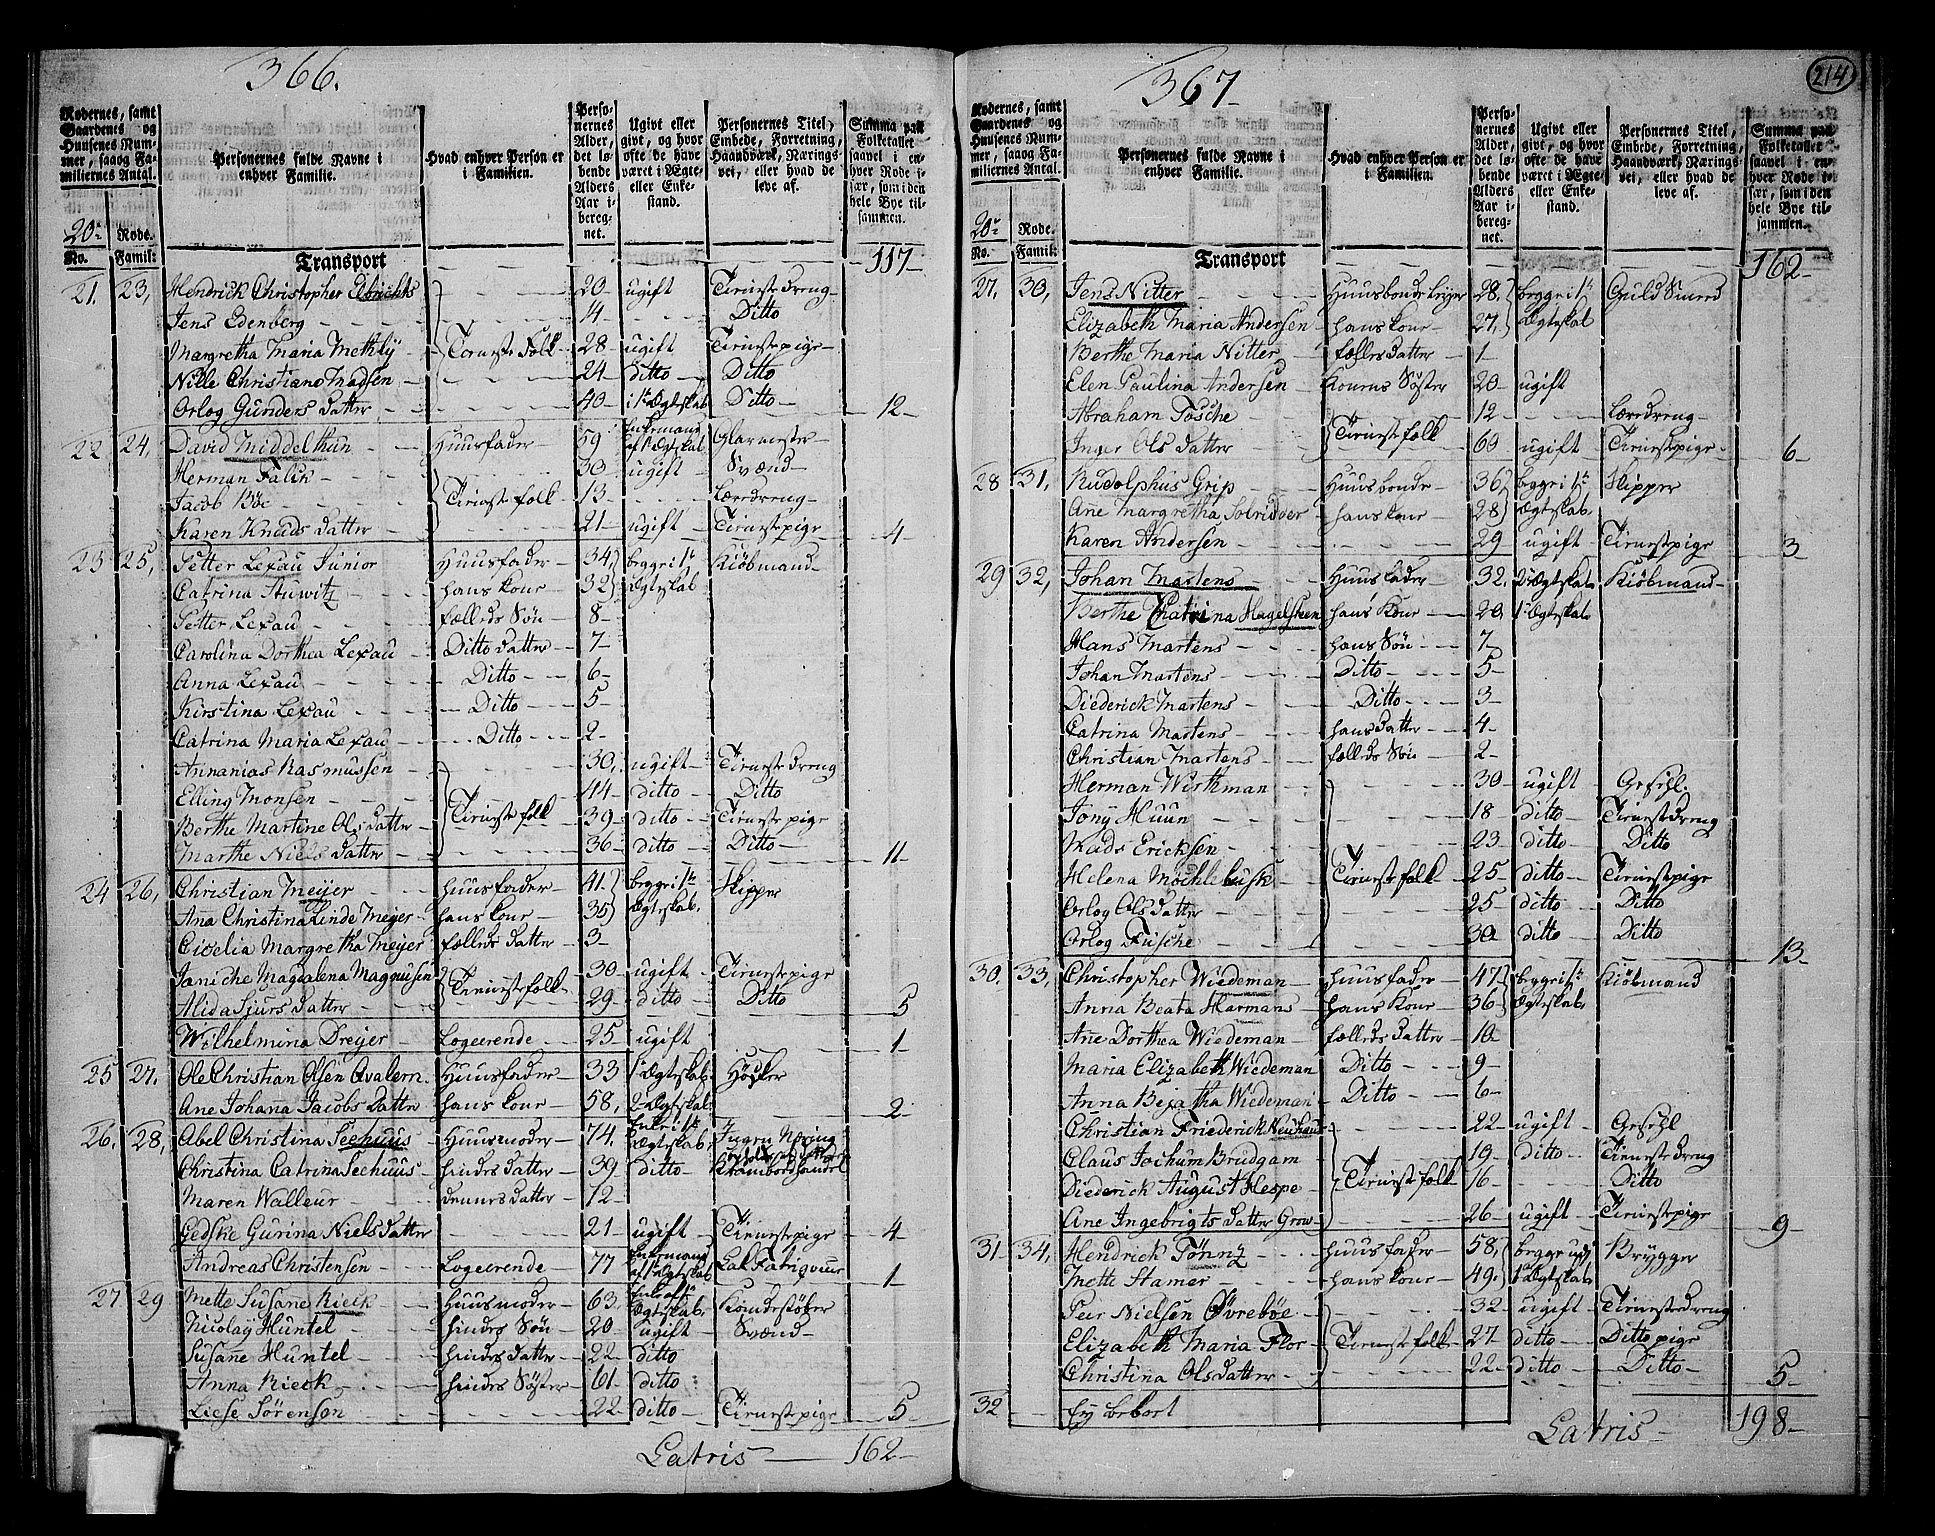 366.
Rodernes, samt Gaardenes og Huusenes Nummer, saaog Familiernes Antal.
Personernes fulde Navne i enhver Familie.
Hvad enhver Person er i Familien.
Personernes Alder, det løbende Alders Aar iberegnet.
Ugivt eller givt, og hvor ofte de have været i Ægte- eller Enkestand.
Personernes Titel, Embede, Forretning, Haandværk, Næringsvei, eller hvad de leve af.
Summa paa Folketallet saavel i enhver Rode især, som i den hele Bye tilsammen.
20de Rode.
No. Famil:
Transport - - - 117-
21. 23, Hendrick Christopher - - 20 ugift Tieneste Dreng
Jens Edenberg - - - 14 - Ditto
Margretha Maria Methly - Tieneste Folk - 28 ugift Tienestepige
Nille Christians Madsen - - 24 ditto - Ditto
Orlog Gunders datter - - 40 - i 1te Ægteskab Ditto - 12 -
22 24, David Middelthun - Huusfader - 59 Enkemand af 1te Ægteskab Glarmester
Herman Falck - - 30 ugift - Svend
Jacob Böe - Tienestefolk - 13 - - Læredreng
Karen Knuds datter - - 21 - ugift - Tienestepige - 4
23 25, Petter Lexau Junior Huusfader - 34, begge i 1te Kiöbmand
Catrina Stuwitz hans kone - 32 Ægteskab
Petter Lexau - - fælleds Sön - 8 -
Carolina Dorthea Lexau Ditto datter - 7 -
Anna Lexau - - Ditto - 6 -
Kirstina Lexau - - Ditto - - 5 -
Catrina Maria Lexau - - Ditto - - 2 -
Annanias Rasmussen - - 30, ugift - Tieneste Dreng
Elling Monsen - - 44 - ditto - Ditto
Berthe Martine Ols datter Tienestefolk - 39 - ditto - Tienestepige
Marthe Niels datter - - 36 - ditto - Ditto - 11 -
24 26, Christian Meyer - - huusfader - 41. begge i 1te Skipper
Ana Christina Linde Meyer - hans kone - 35 Ægteskab.
Margretha Meyer fælleds datter - 3 -
Maniche Magdalena Magnusen Tienestefolk - 30 - ugift - Tienestepige
Alida Sjurs datter - - 29 - ditto - Ditto - 5
Wilhelmina Dreyer - Logeerende - 25 ugift - 1 -
25 27. Ole Christian Olsen Qvalem. Huusfader - 33 1te Ægteskab Höcker
Ane Johana Jacobs datter hans kone - 58, 2 Ægteskab - 2 -
26. 28, Abel Christina Seehuus - Huusmoder - 74, Enke i 1te Ægteskab Ingen Næring
Christina Catrina Seehuus - hendes datter - 39 ditto -
Maren Walleur - - dennes datter - 12 -
Gedske Gurina Niels datter - - 21 ugift - Tienestepige - 4 -
Andreas Christensen - Logeerende - 77 Enkemand af 1te Ægteskab Lak Fabriqveur - 1 -
27 29 Mette Susane Rieck - Huusmoder - 63. Enke af 1te Ægteskab Kandestöber
Nicolay Huntel - - hendes Sön - 20 ugift - Svend -
Susane Huntel - - hendes datter - 22 - ditto
Anna Rieck - - hendes Söster - 61 - ditto
Liese Sörensen - - 22 - ditto - Tienestepige - 5 -
Latris - 162 -
214
367-
Rodernes, samt Gaardenes og Huusenes Nummer, saaog Familiernes Antal.
Personernes fulde Navne i enhver Familie.
Hvad enhver Person er i Familien.
Personernes Alder, det løbende Alders Aar iberegnet.
Ugivt eller givt, og hvor ofte de have været i Ægte- eller Enkestand.
Personernes Titel, Embede, Forretning, Haandværk, Næringsvei, eller hvad de leve af.
Summa paa Folketallet saavel i enhver Rode især, som i den hele Bye tilsammen.
20de Rode.
No. Famil:
Transport - - - 162 -
27. 30, Jens Nitter - - Huusbonde 28, begge i 1te Guld Smed
Elizabeth Maria Andersen - hans kone - 27, Ægteskab
Berthe Maria Nitter - fælleds datter - 1 -
Elen Paulina Andersen - Konens Söster - 20 - ugift
Abraham Tosche - 12 - - Læredreng -
Inger Ols datter - Tienestefolk - 60 ugift - Tienestepige - 6 -
28 31, Rudolphus Grip - Huusbonde - 36 begge i 1te Skipper
Ane Margretha - hans kone - 28 Ægteskab
Karen Andersen - - 29 ugift - Tienestepige - 3
29 32, Johan Martens - Huusfader - 32. 2 Ægteskab Kiöbmand -
Berthe Chatrina Hagelsteen hans Kone - 20 1te Ægteskab
Hans Martens - - hans Sön - - 7 -
Johan Martens - - Ditto - 5 -
Diederick Martens - - Ditto - - 3 -
Catrina Martens - hans datter - 4 -
Christian Martens - fælleds Sön - 2 -
Herman Wirthman - - 30 ugift - Gesehl.
Tony Huun - - 18 ditto - Tieneste Dreng
Mads Ericksen - - 23 ditto - Ditto
Helena Möchlebusk - Tienestefolk - 25 - ditto - Tienestepige
Orlog Ols datter - - 25 - ditto - Ditto
Orlog Fusche - - 30 - ditto - Ditto 13 -
30. 33, Christopher Wiedeman - huusfader - 47 begge i 1te Kiöbmand
Anna Beata Harmans - hans Kone - 36 Ægteskab
Ane Dorthea Wiedeman - fælleds datter - 10 -
Maria Elizabeth Wiedeman Ditto - 9 -
Anna Bejatha Wiedeman - Ditto - 6 -
Christian Friederick Neuhaus - 22 - ugift - Gesehl
Claus Jochum Brudgam - - 19 - ditto - Tieneste Dreng
Diederick August Hespe - Tienestefolk - 16 - - Ditto
Ane Ingebrigts datter Grow - - 26 - ugift - Tienestepige - 9 -
31 34, Hendrick Tönny - - huusfader - 58, begge udi Brygger
Mette Stamer - - hans kone - 49. 1te Ægteskab
Peer Nielsen Övreböe - - 32 - ugift - Tienestedreng
Elizabeth Maria Flor - Tienestefolk - 27 ditto - Ditto pige
Christina Ols datter - - 22 - ditto - Ditto - 5 -
32 - Ey beboet
Latris - 198 -